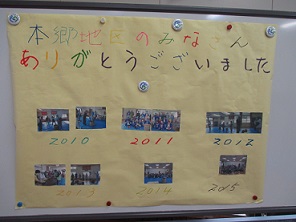 本郷地区のみなさん
ありがとうございました
2010 2011 2012
2013 2014 2015